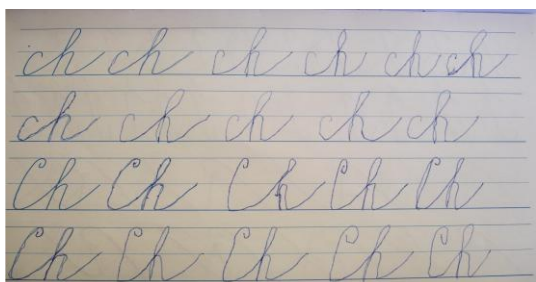 ch ch ch ch ch ch
ch ch ch ch ch
Ch Ch Ch Ch Ch
Ch Ch Ch Ch Ch